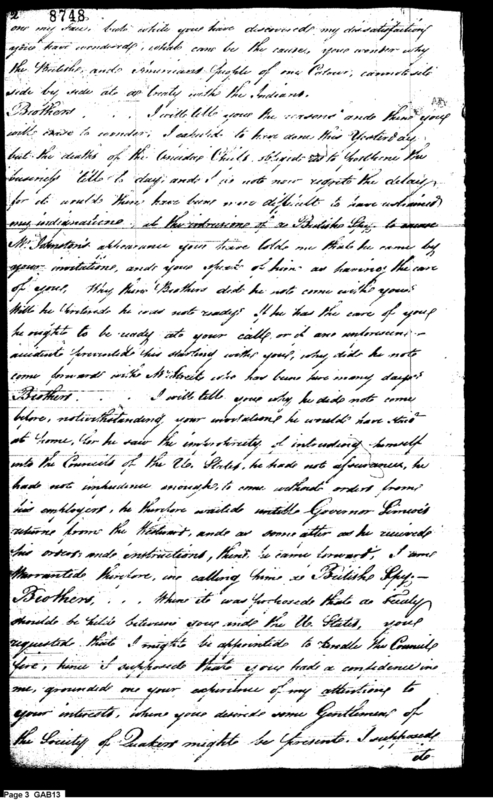 2 8748
on my Face, but while you have discovered my dissatisfaction
you have wondered, what can be the cause, you wonder why
the British, and American People of one Colour, cannot sit
side by side at a Treaty with the Indians.
Brothers . . . I will tell you the reasons and then you
will cease to wonder; I wished to have done this Yesterday
but the death of the Oneida Child obliged us to postpone the
business till to day; and I do not now regret the delay,
for it would then have been more difficult to have restrained
my indignation, at the intrusion of a British Spy, to excuse
Mr. Johnston's appearance you have told me that he came by
your invitation, and you speak of him as having the care
of you, Why then Brothers did he not come with you?
Will he pretend he was not ready? If he has the care of you
he ought to be ready at your call, or if any unforeseen
accident prevented his starting with you, why did he not
come forward with Mr. Street who has been here many days?
Brothers . . . I will tell you why he did not come
before, notwithstanding your invitation he would have staid
at home, for he saw the impropriety of intruding himself
into the Councils of the U. States, he had not assurance, he
had not impudence enough, to come without orders from
his employers, he therefore waited untill Governor Simcoe's
return from the Westward, and as soon after as he received
his orders and instructions, then he came forward, I am
Warranted therefore, in calling him a British Spy.—
Brothers, . . . When it was proposed that a Treaty
should be held between you and the U. States, you
requested that I might be appointed to kindle the Council
fire, hence I supposed that you had a confidence in
me, grounded on your experience of my attentions to
your interests, when you desired some Gentlemen of
the Society of Quakers might be present. I supposed
it
Page 3 GAB13